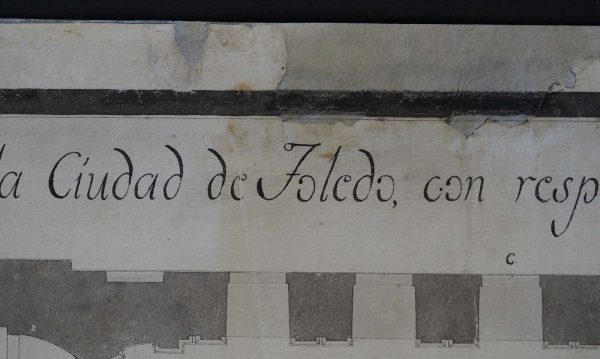 la Ciudad de Toledo, con resp
c.